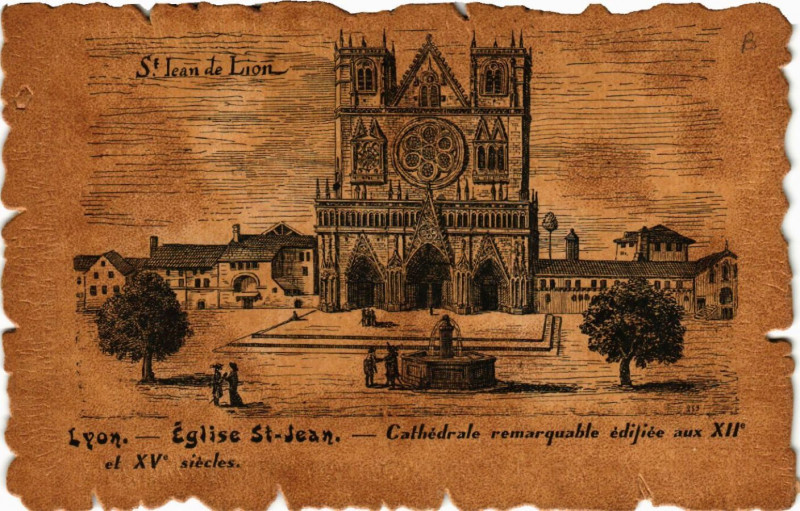 St Jean de Lion
B
Lyon. — Église St-Jean. — Cathédrale remarquable édifiée aux XIIe
et XVe siècles.